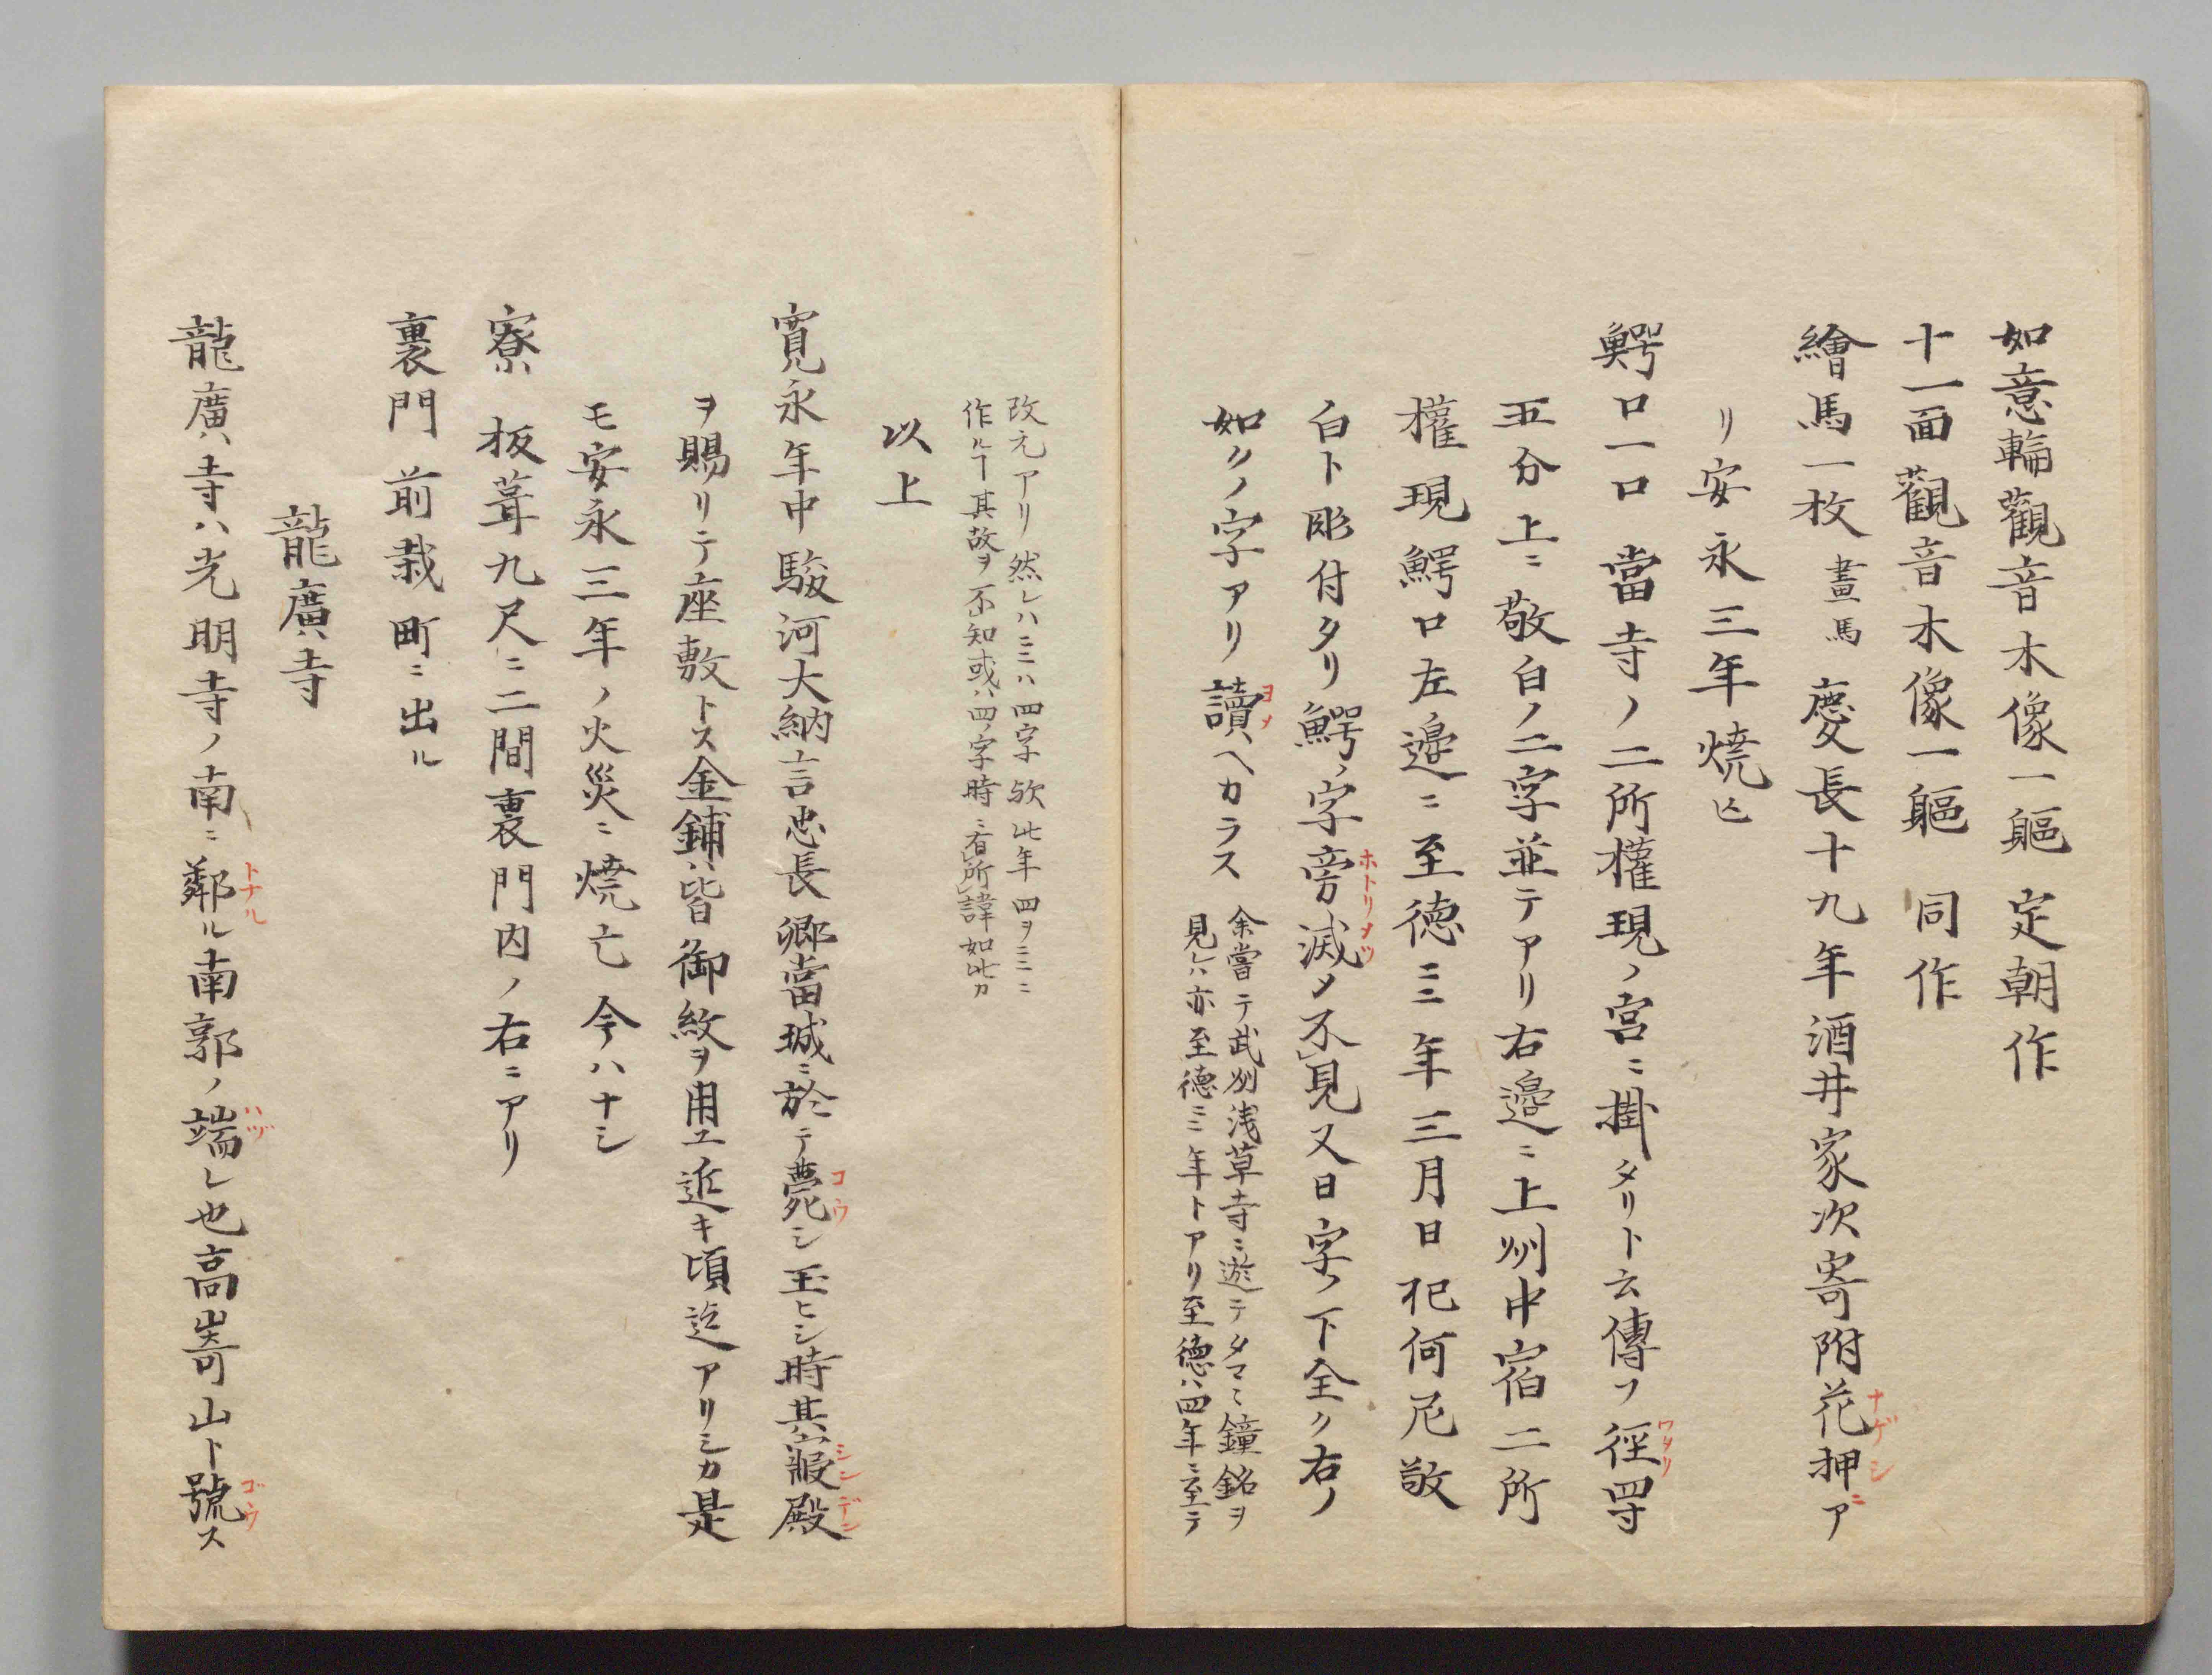 如意輪觀音木像一軀 定朝作
十一面觀音木像一軀 同作
繪馬一枚 畫馬 慶長十九年酒井家次寄附花押ア
リ安永三年焼亡
鰐口一口 當寺ノ二所權現ノ宮ニ掛タリト云傳フ徑
五分上ニ敬白ノ二字並テアリ右邉ニ上州中宿二所
權現鰐口左ノ邉ニ至徳三三年三月日 何尼敬
白ト彫付タリ鰐ノ字旁滅メ不見又日ノ字ノ下全ク右ノ
如クノ字アリ讀ヘカラス
余嘗テ武州浅草寺ニ遊テタマミ鐘銘ヲ
見レハ亦至徳三三年トアリ至徳ハ四年ニ至テ
改元アリ然レハ三三ハ四字欤此年四ヲ三三ニ
作ルヿ其故ヲ不知或ハ四ノ字時ニ有所諱如此カ
以上
寛永年中駿河大納言忠長卿當城ニ於テ薨シ玉ヒシ時其寢殿
ヲ賜リテ座敷トス金鋪ハ皆御紋ヲ用エ近キ頃迠アリシカ是
モ安永三年ノ火災ニ焼亡今ハナシ
寮ハ 板葺九尺ニ二間裏門内ノ右ニアリ
裏門 前栽町ニ出ル
龍廣寺
龍廣寺ハ光明寺ノ南ニ鄰ル南郭ノ端レ也高嵜山ト號ス